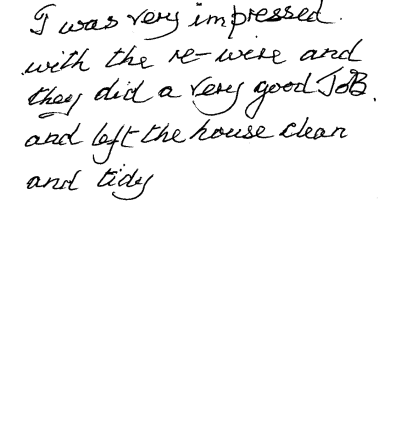 I was very impressed.
with the re-wire and
they did a very good JoB.
and left the house clean
and tidy